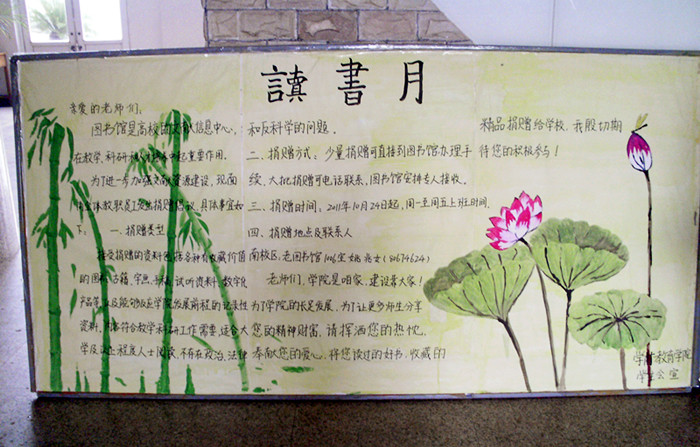 讀書月
亲爱的老师们:
图书馆是高校的文献信息中心,
在教学、科研 起重要作用。
为了进一步加强文献资源建设,现面
向全体教职员工发出捐赠倡议,具体事宜如
下: 一、捐赠类型
接受捐赠的资料包括各种有收藏价值
的图书、古籍、字画、 试听资料、数字化
产品等,以及能够反应学院发展前程的记录性
资料,内容符合教学科研工作需要,适合大
学及以上程度人士阅读,不存在政治、法律
和反科学的问题。
二、捐赠方式:少量捐赠可直接到图书馆办理手
续,大批捐赠可电话联系,图书馆安排专人接收。
三、捐赠时间:2011年10月24日起,周一至周五上班时间。
四、捐赠地点及联系人
南校区:老图书馆106室 姚 (80674624)
老师们,学院是咱家,建设靠大家!
为了学院的长足发展,为了让更多师生分享
您的精神财富,请挥洒您的热忱,
奉献您的爱心,将您读过的好书、收藏的
精品捐赠给学校,我殷切期
待您的积极参与!
学前教育学院
学生会 宣